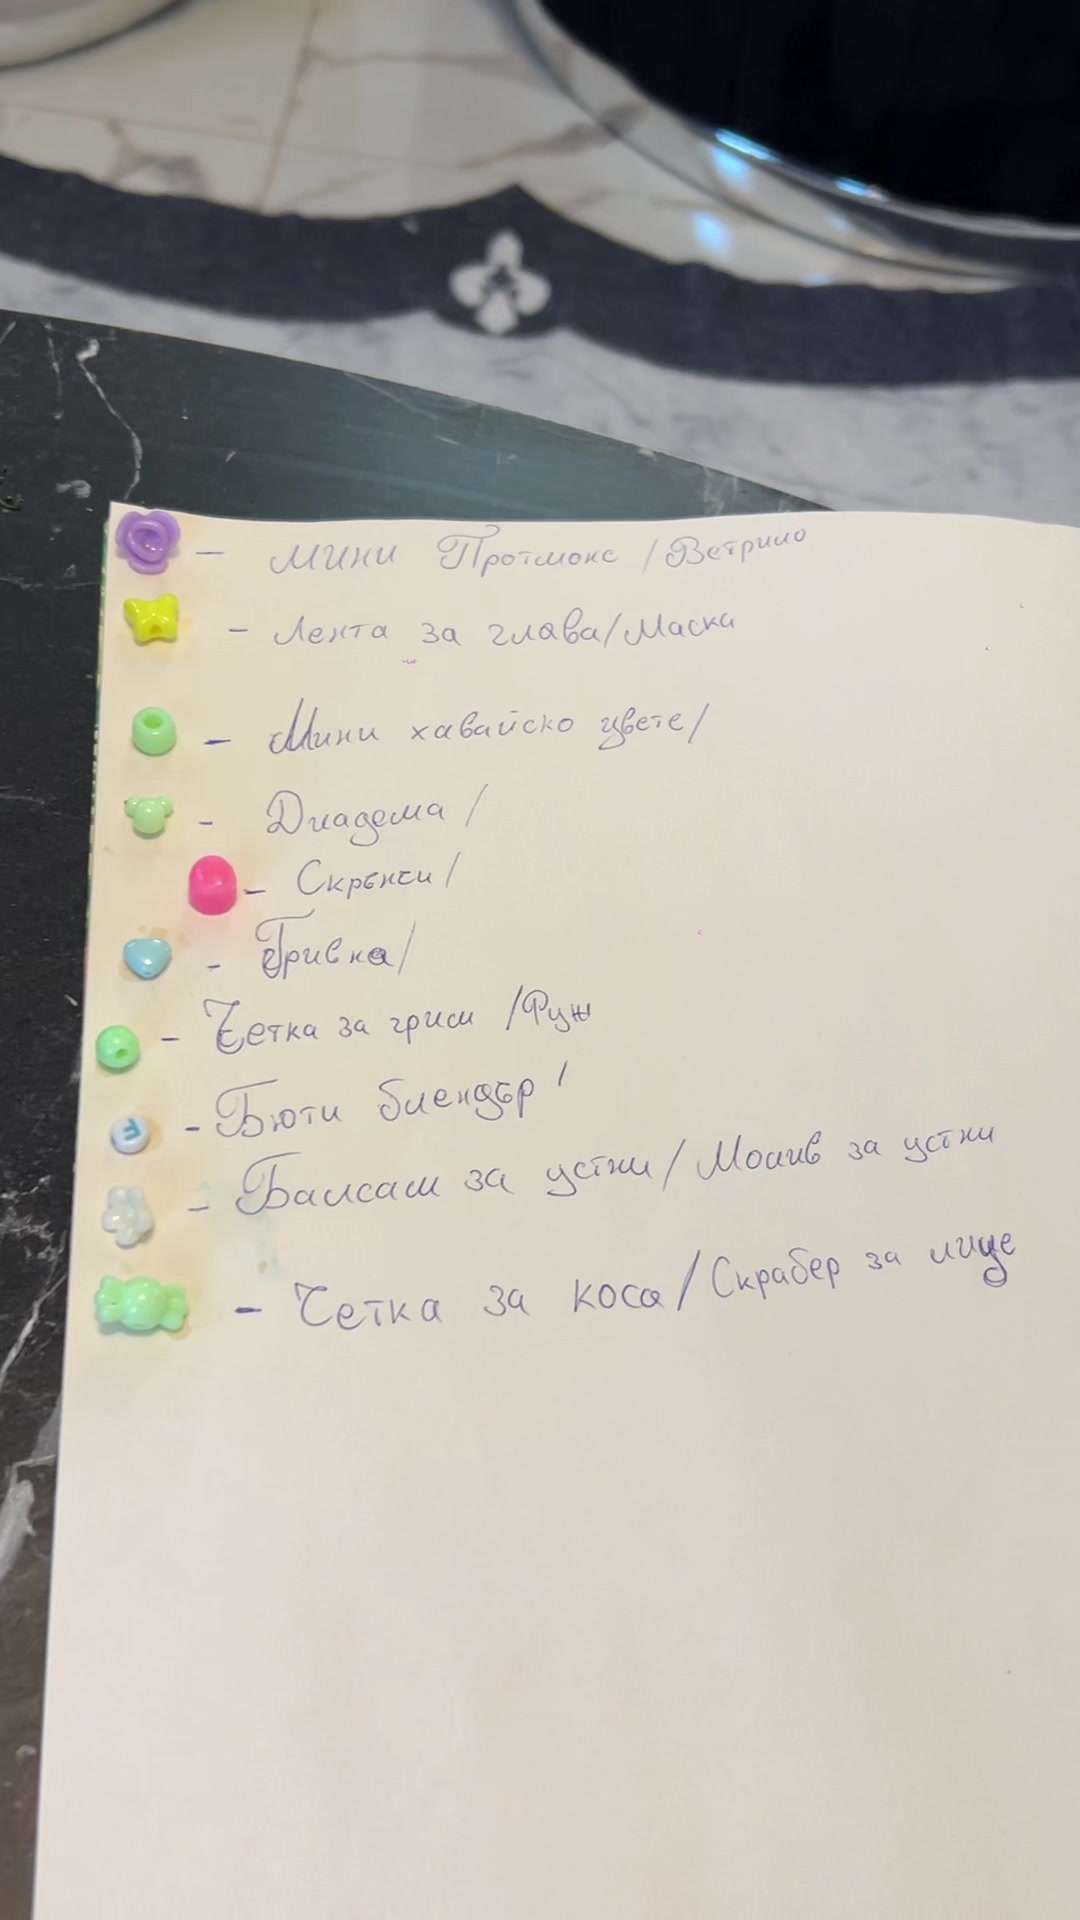 - Мини Протмоне / Ветрило
- Лента за глава/Маска
- Мини хавайско цвете/
- Диадема /
- Скрънси /
- Гривна/
- Четка за грим /Руж
- Бюти блендър /
F
- Балсам за устни / Молив за устни
- Четка за коса / Скрабер за лице